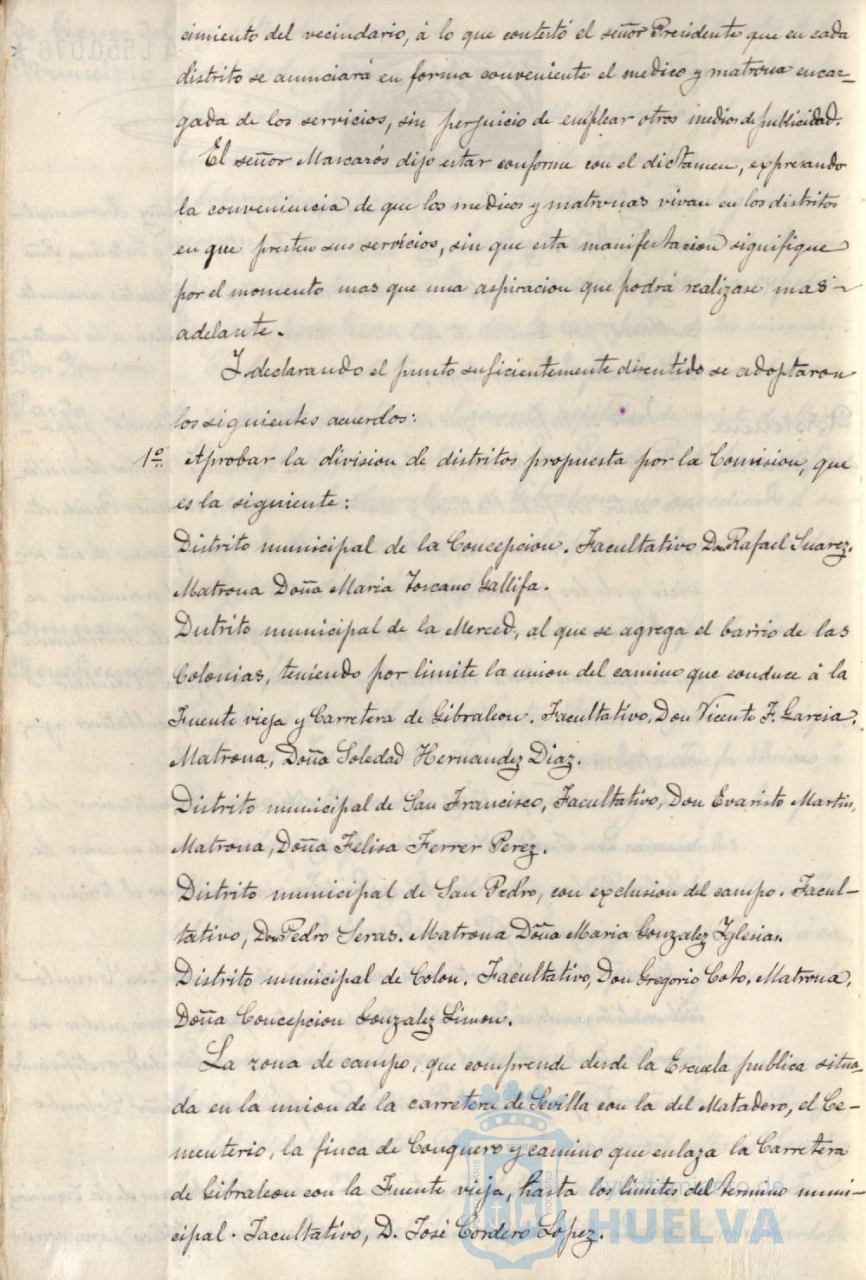 cimiento del vecindario, á lo que contestó el señor Presidente que en cada
distrito se anunciará en forma conveniente el medico y matrona encar-
gada de los servicios, sin perjuicio de emplear otros medios de publicidad.
El señor Mascarós dijo estar conforme con el dictamen, expresando
la conveniencia de que los medicos y matronas vivan en los distritos
en que presten sus servicios, sin que esta manifestacion signifique
por el momento mas que una aspiracion que podrá realizase mas
adelante.
Y declarando el punto suficientemente discutido se adoptaron
los siguientes acuerdos:
1º. Aprobar la division de distritos propuesta por la Comision, que
es la siguiente:
Distrito municipal de la Concepcion. Facultativo Don Rafael Suarez.
Matrona Doña Maria Toscano Gallifa.
Distrito municipal de la Merced, al que se agrega el barrio de las
Colonias, teniendo por limite la union del camino que conduce á la
Fuente vieja y Carretera de Gibraleon. Facultativo, Don Vicente F. Garcia.
Matrona, Doña Soledad Hernandez Diaz.
Distrito municipal de San Francisco, Facultativo, Don Evaristo Martin,
Matrona, Doña Felisa Ferrer Perez.
Distrito municipal de San Pedro, con exclusion del campo. Facul-
tativo, Don Pedro Seras. Matrona Doña Maria Gonzalez Iglesias.
Distrito municipal de Colon. Facultativo, Don Gregorio Coto. Matrona,
Doña Concepcion Gonzalez Limon.
La zona de campo, que comprende desde la Escuela publica situa-
da en la union de la carretera de Sevilla con la del Matadero, el Ce-
menterio, la finca de Conquero y camino que enlaza la Carretera
de Gibraleon con la Fuente vieja, hasta los limites del termino muni-
cipal. Facultativo, D. José Cordero Lopez.
Ayuntamiento de
HUELVA